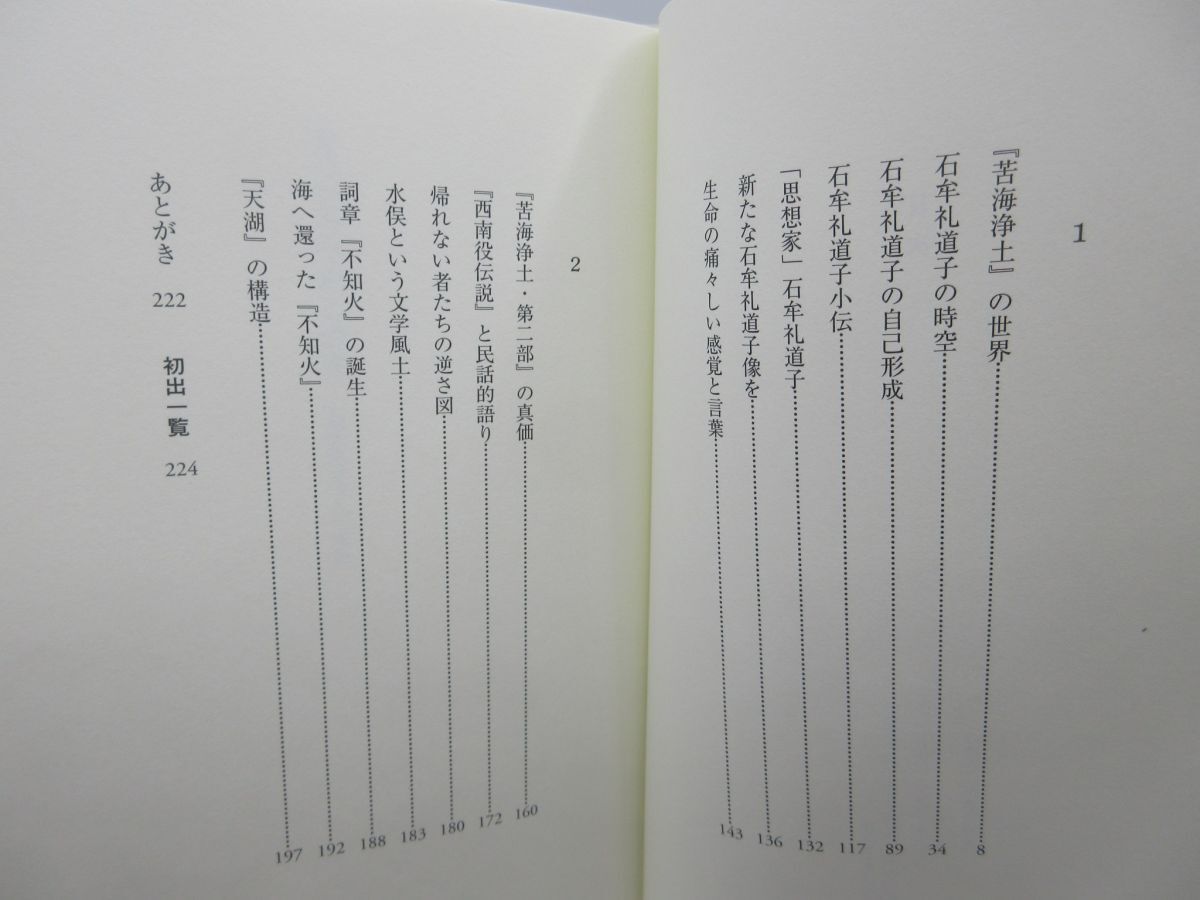 1
『苦海浄土』の世界…………8
石牟礼道子の時空…………34
石牟礼道子の自己形成…………89
石牟礼道子小伝…………117
「思想家」石牟礼道子…………132
新たな石牟礼道子像を…………136
生命の痛々しい感覚と言葉…………143
2
『苦海浄土・第二部』の真価…………160
『西南役伝説』と民話的語り…………172
帰れない者たちの逆さ図…………180
水俣という文学風土…………183
詞章『不知火』の誕生…………188
海へ還った『不知火』…………192
『天湖』の構造…………197
あとがき 222 初出一覧 224